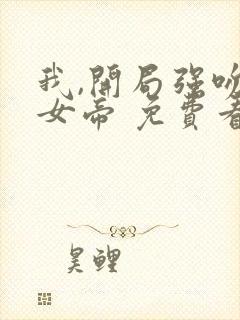 我,開局強吻
女帝 免費看
昊鯉